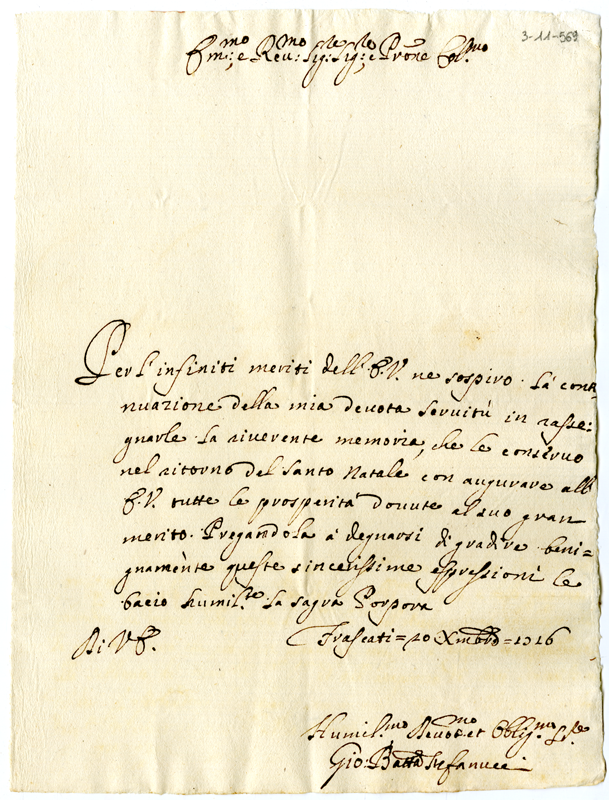 3-11-569
Em:mo e Reu:mo Sig:re Sig:re e Prōne Col.mo
Per l'infiniti meriti dell'E.V. ne sospiro la conti-
nuazione della mia deuota seruitù in rasse:
gnarle la riuerente memoria, che le conseruo
nel ritorno del Santo Natale con augurare all'
E.V. tutte le prosperità douute al suo gran
merito. Pregandola à degnarsi di gradire beni=
gnamènte queste sincerissime espressioni le
bacio humil.te la sagra Porpora
Di V.E.
Frascati = 20 Xmbre =
Humil.mo Deuot.mo et Oblig.mo
Gio: Batta Stefanucci